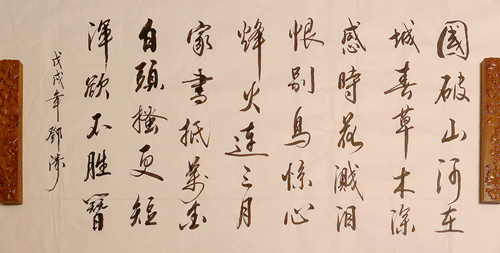 國破山河在
城春草木深
感時花濺泪
恨别鳥惊心
烽火連三月
家書抵萬金
白頭搔更短
渾欲不勝簪
戊戌年鄧涛